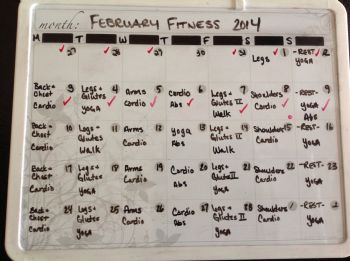 month: FEBRUARY FITNESS 2014
M T W T F S S
27 28 29 30 31 1 -REST- 2
Legs YOGA
Back + 3 Legs + 4 Arms 5 Cardio 6 Legs + 7 Shoulders 8 -REST- 9
Chest Glutes Cardio Abs Glutes II Cardio YOGA
Cardio YOGA Walk Abs
Back + 10 Legs + 11 Arms 12 Yoga 13 Legs + 14 Shoulders 15 -REST- 16
Chest Glutes Cardio Abs Glutes II Cardio YOGA
Cardio Walk Walk
Back + 17 Legs + 18 Arms 19 Cardio 20 Legs + 21 Shoulders 22 -REST- 23
Chest Glutes Cardio Abs Glutes II Cardio YOGA
Cardio YOGA YOGA
Back + 24 Legs + 25 Arms 26 Cardio 27 Legs + 28 Shoulders 1 -REST- 2
Chest Glutes Cardio Abs Glutes II Cardio YOGA
Cardio YOGA YOGA